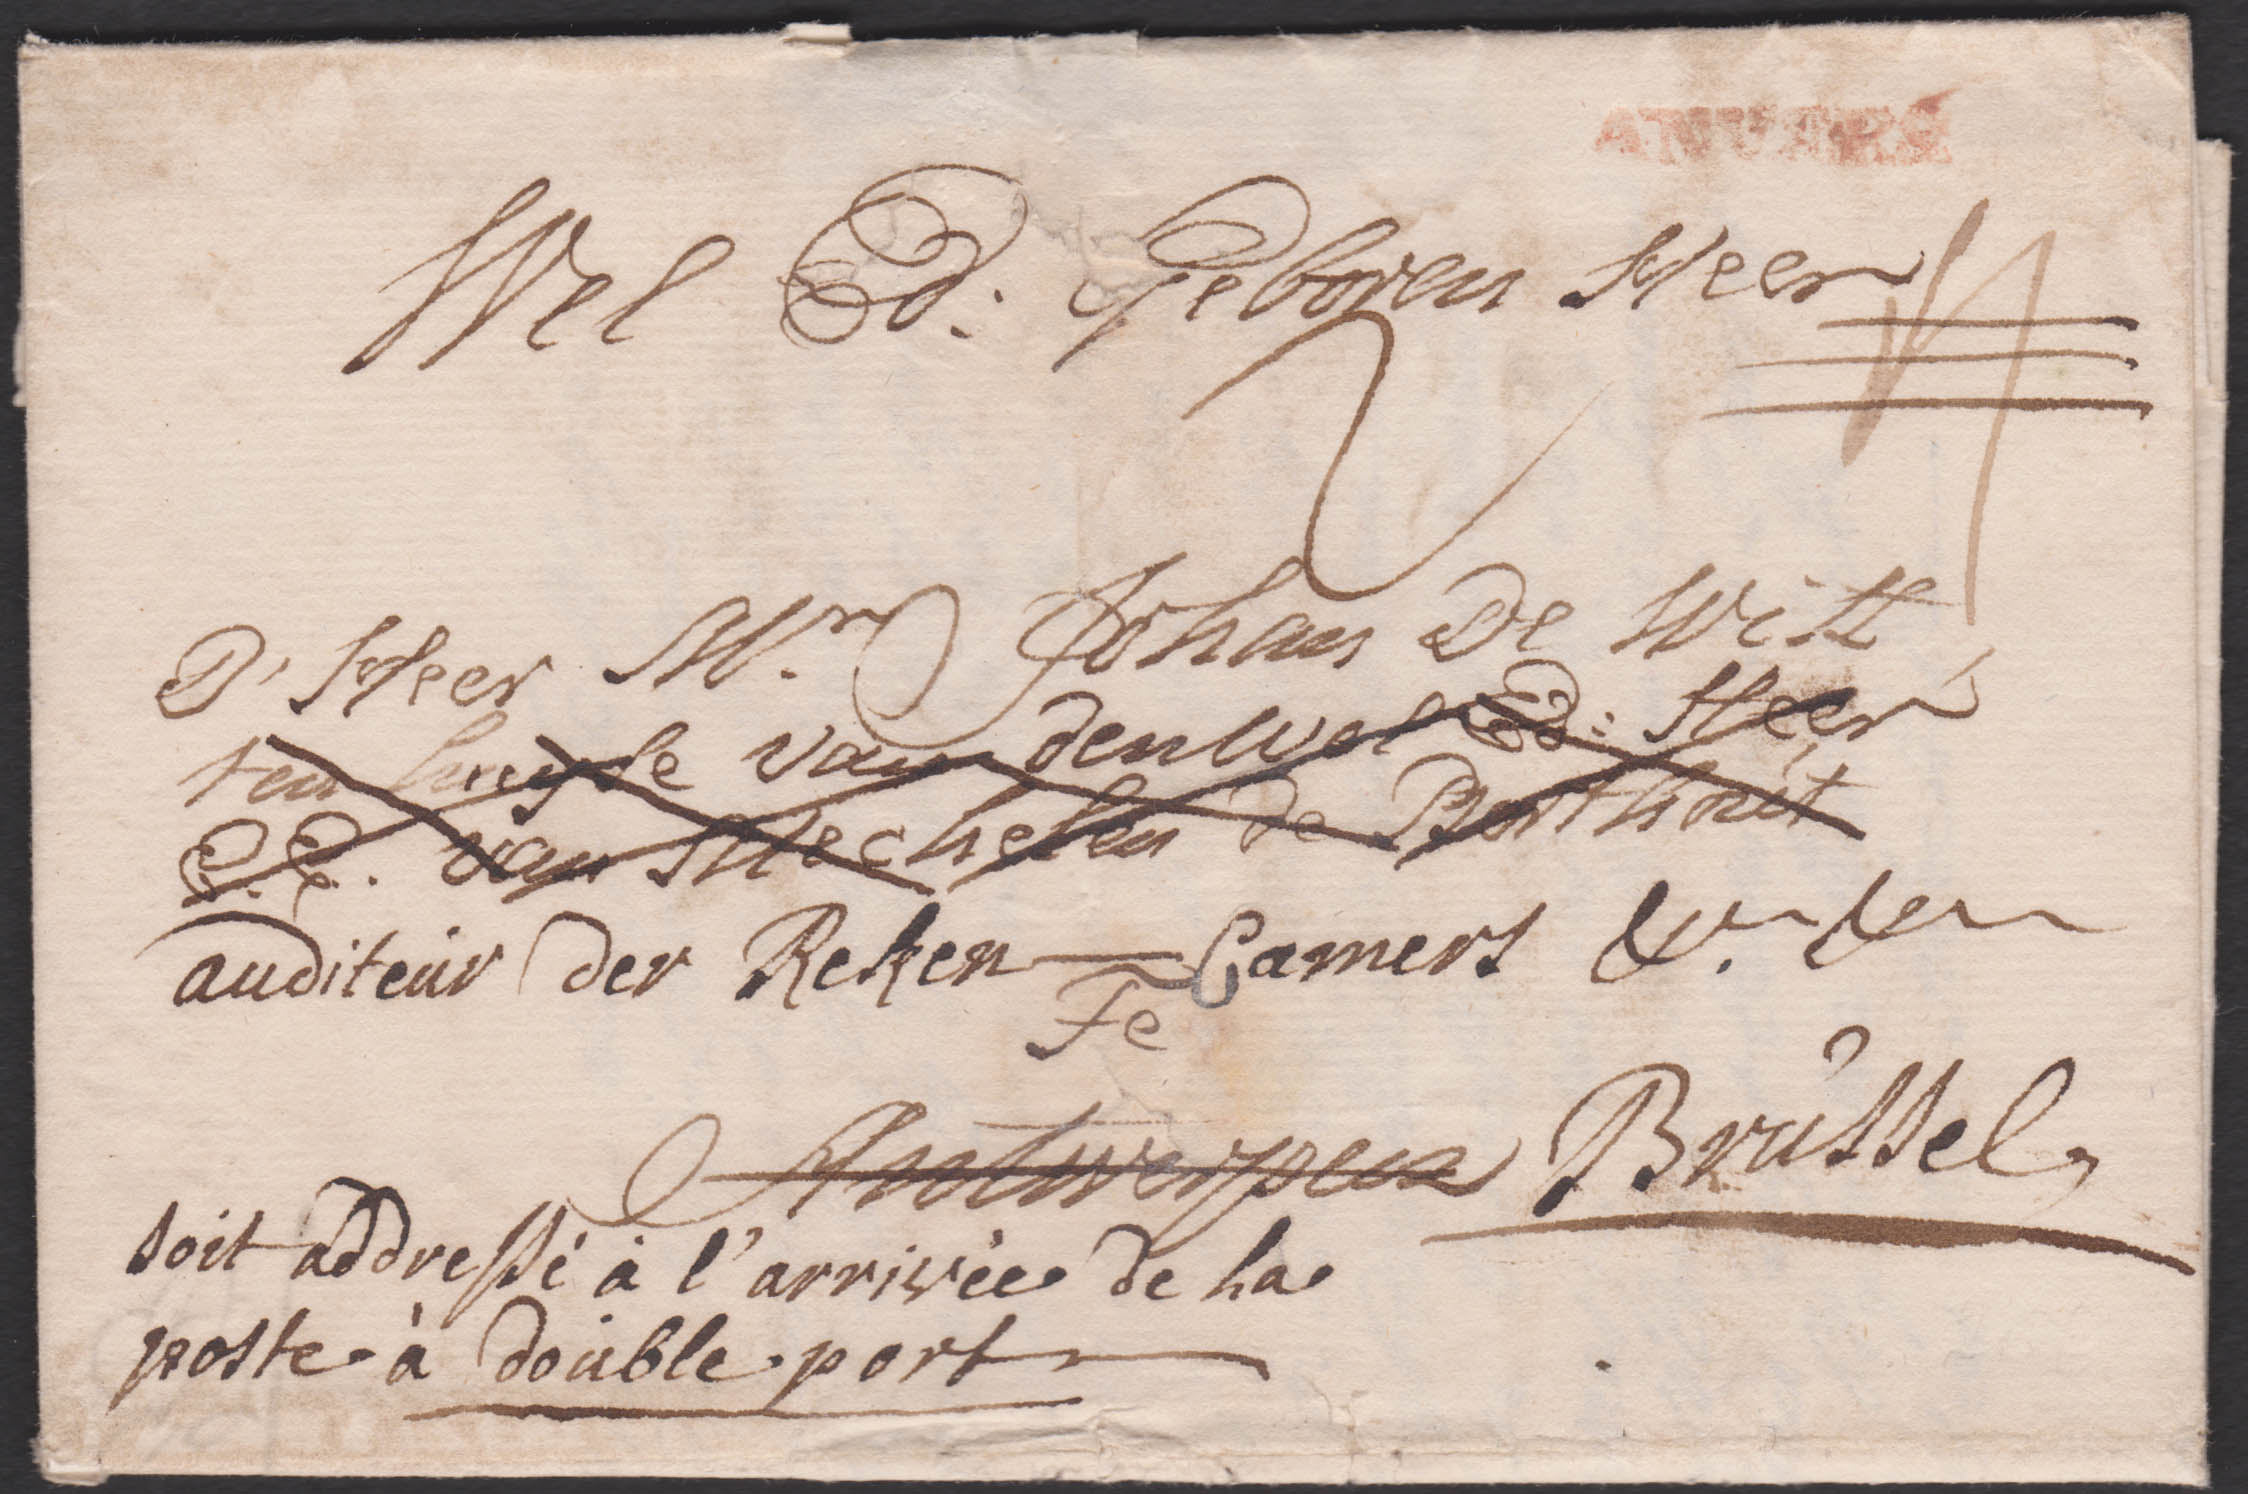 ANVERS
Wel Ed: Geboren Heer
D' Heer Mr. Johan De Witt
ten huyse van den wel Ed: Heer
van Mechelen de Borthout
auditeur der Reken-Camers &r. &rn
Te
Antwerpen Brussel
soit addressé à l'arrivée de la
poste à double port